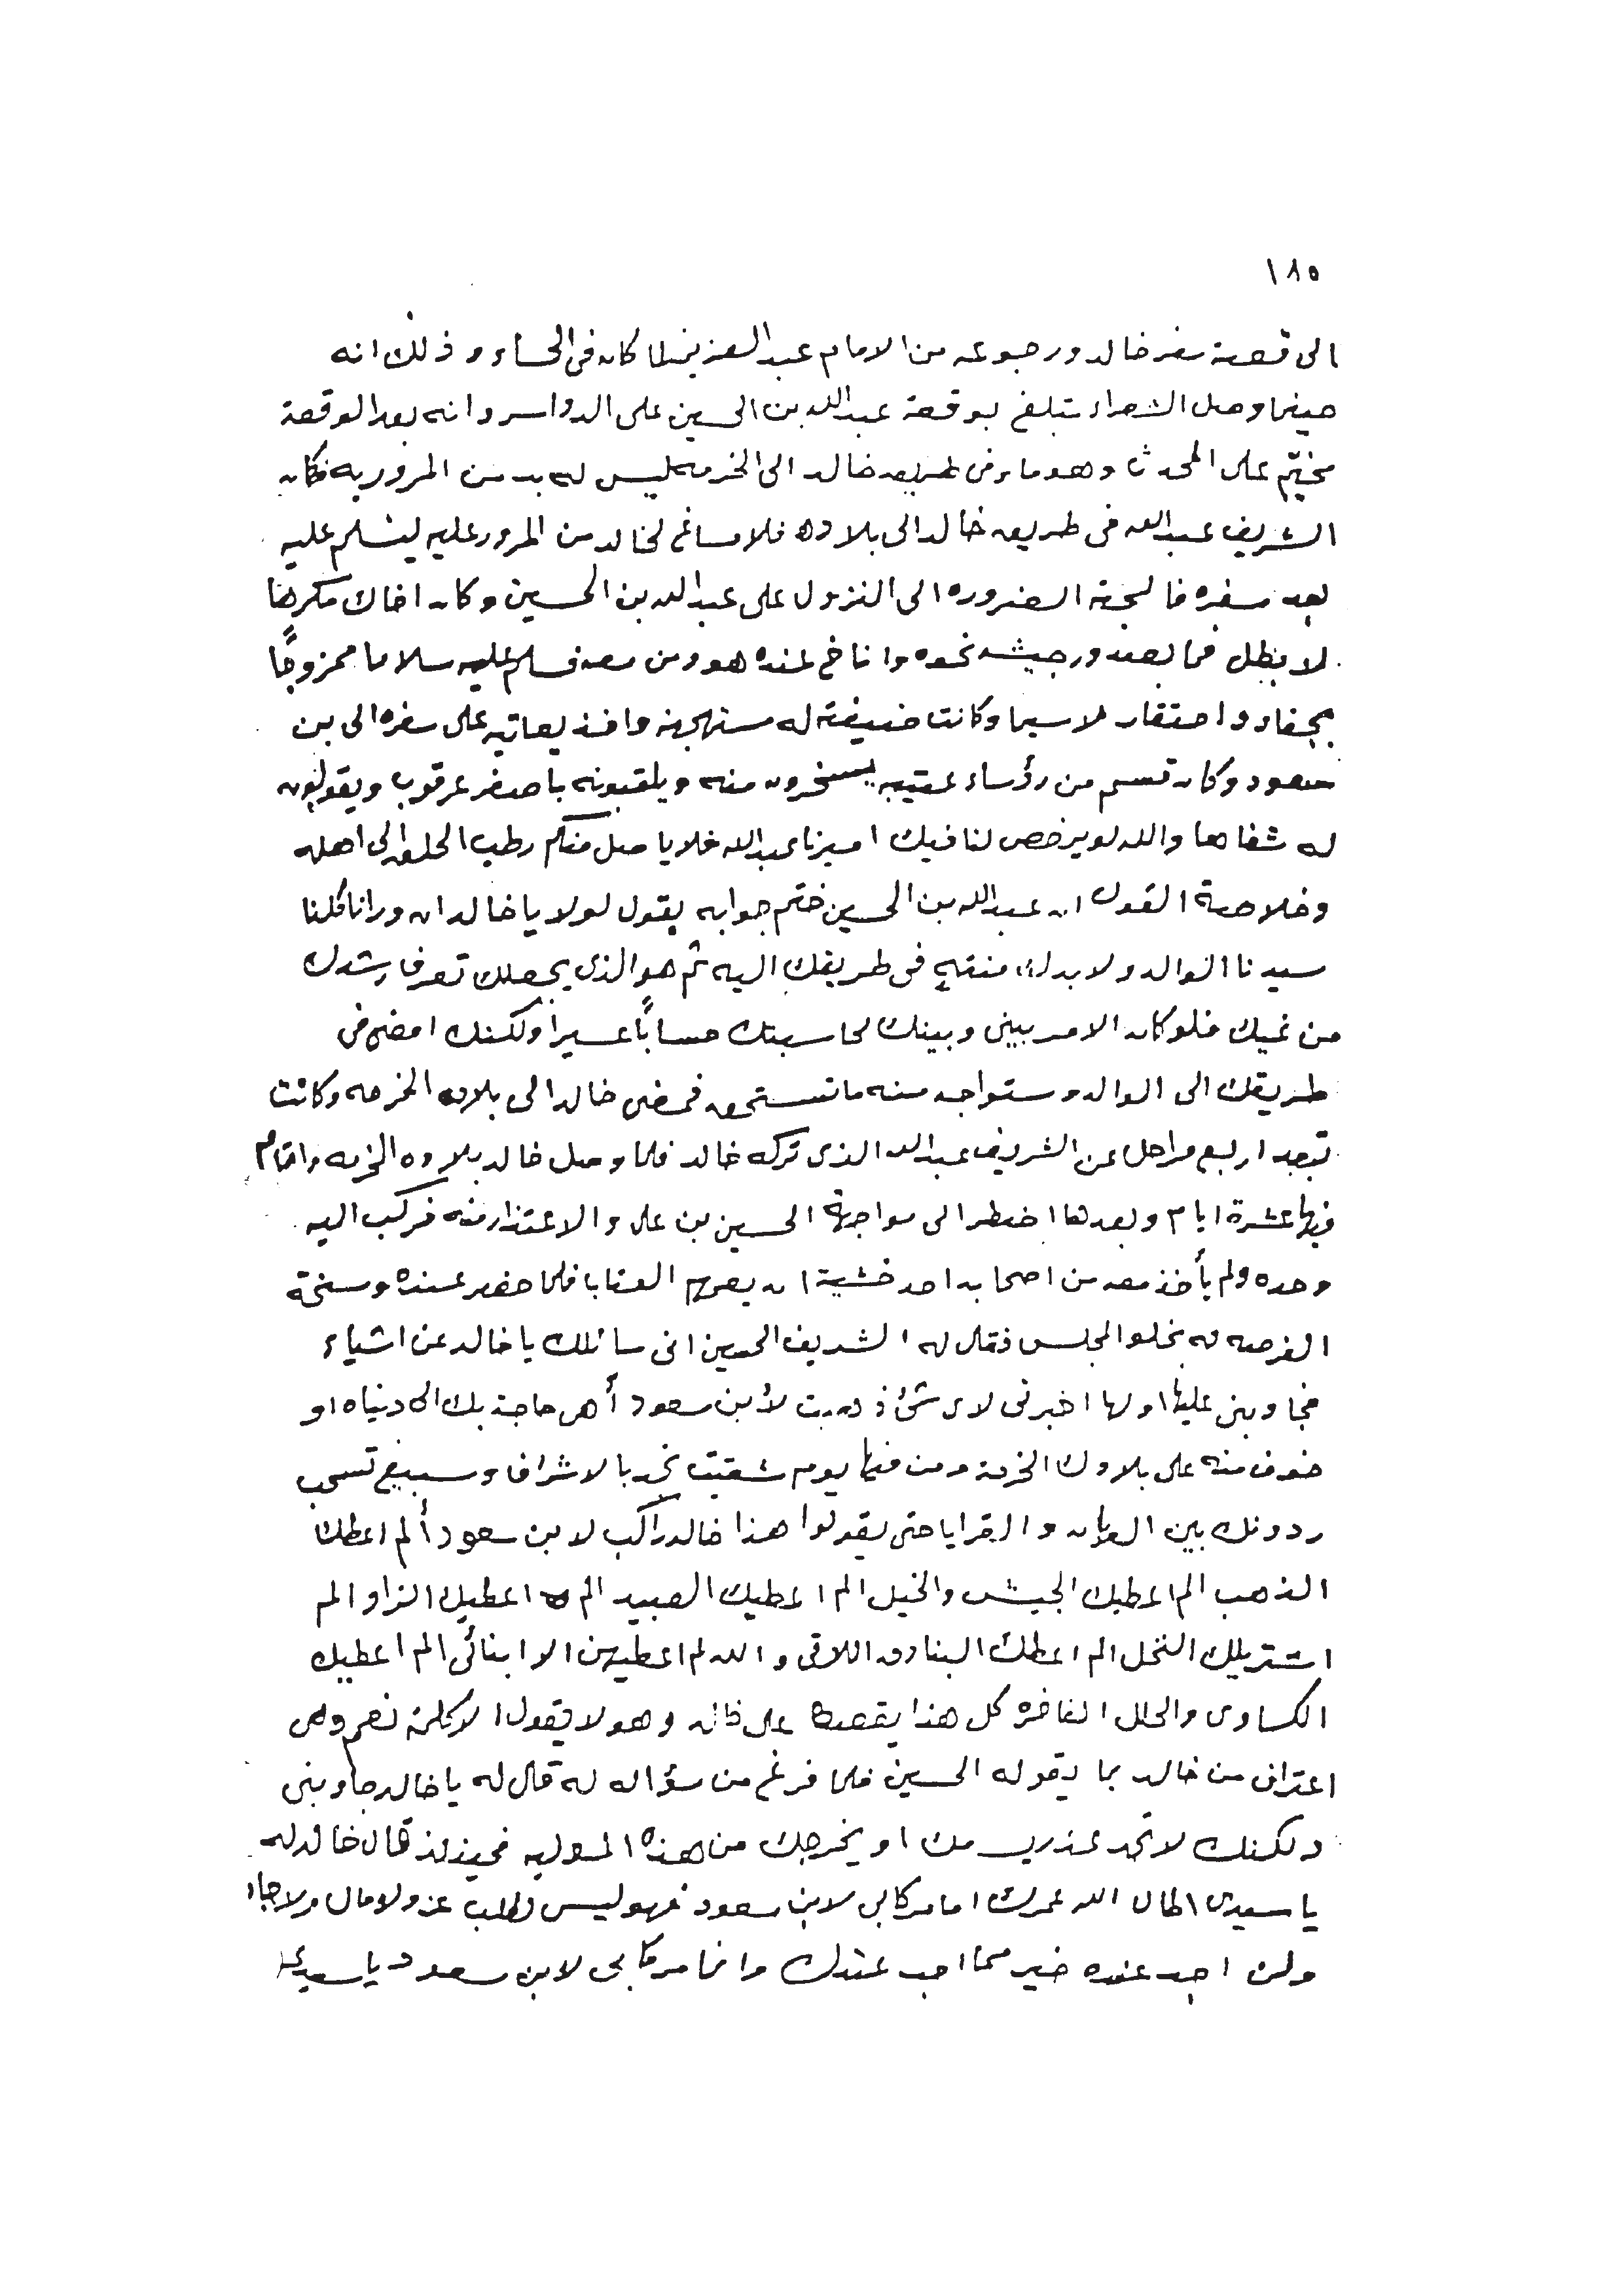 ١٨٥
الى قصة سفر خالد ورجوعه من الامام عبد العزيز لما كان فى الحساء وذلك انه
حينما وصل الشعراء تبلغ بوقعة عبد الله بن الحسين على الدواسر وانه بعد الوقعة
مخيّم على المحدث وهو ماء فى طريق خالد الى الخرمه ليس له بد من المرور به فكان
الشريف عبد الله فى طريق خالد الى بلاده فلا مساغ لخالد من المرور عليه ليسلم عليه
بعد سفره فالجئته الضروره الى النزول على عبد الله بن الحسين وكان اخاك مكرها
لا بطل فما بعد ورجيشه نحوه واناخ عنده هو ومن معه فسلم عليه سلاما ممزوجًا
بجفاء واحتقار لا سيما وكانت ضيفته له مستهجنه واخذ يعاتبه على سفره الى بن
سعود وكان قسم من رؤساء عتيبه يسخرون منه ويلقبونه باصفر عرقوب ويقولون
له شفاها والله لو يرخص لنا فيك اميرنا عبد الله فلا يا صل منكم رطب الحلق الى اهله
وخلاصة القول ان عبد الله بن الحسين ختم جوابه بقول لولا يا خالد ان ورانا كلنا
سيدنا الوالد ولا بد لك منته فى طريقك اليه ثم هو الذى يجعلك تعرف رشدك
من غيك فلو كان الامر بينى وبينك لحاسبتك حسابًا عسيرا ولكنك امضى فى
طريقك الى الوالد وستواجد منه ما تستحق فمضى خالد الى بلاده الخرمه وكانت
تبعد اربع مراحل عن الشريف عبد الله الذى تركه خالد فلما وصل خالد بلاده الخرمه واقام
فيها عشرة ايام وبعدها اضطر الى مواجهة الحسين بن على والاعتذار منه فركب اليه
وحده ولم يأخذ معه من اصحابه احد خشية ان يعمهم العقاب فلما حضر عنده وسنحة
الفرصه له بخلو المجلس فقال له الشريف الحسين انى سائلك يا خالد عن اشياء
فجاوبنى عليها اولها اخبرنى لاى شئ ذهبت لأبن سعود أهى حاجة بك الى دنياه او
خوف منه على بلادك الخرمة ومن فيها يوم شقيت نجد بالاشراف وسبيع تسحب
ردونك بين العربان والقرايا حتى يقولوا هذا خالد راكب لابن سعود ألم اعطك
الذهب الم اعطيك الجيش والخيل الم اعطيك العبيد الم اعطيك الزاد الم
اشتريلك النخل الم اعطك البنادق اللاتى والله لم اعطيهن الا ابنائى الم اعطيك
الكساوى والحلل الفاخره كل هذا يقصها على خالد وهو لا يقول الا كلمة نعم وهى
اعتراف من خالد بما يقوله الحسين فلما فرغ من سؤاله له قال له يا خالد جاوبنى
ولكنك لا تجد عذر يسمك او يخرجك من هذه المسوليه فحينئذ قال خالد له
يا سيدى اطال الله عمرك اما مركابى لابن سعود فهو ليس لطلب عز ولا مال ولا جاه
ولن اجد عنده خير مما اجد عندك وانما مركابى لابن سعود يا سيدى